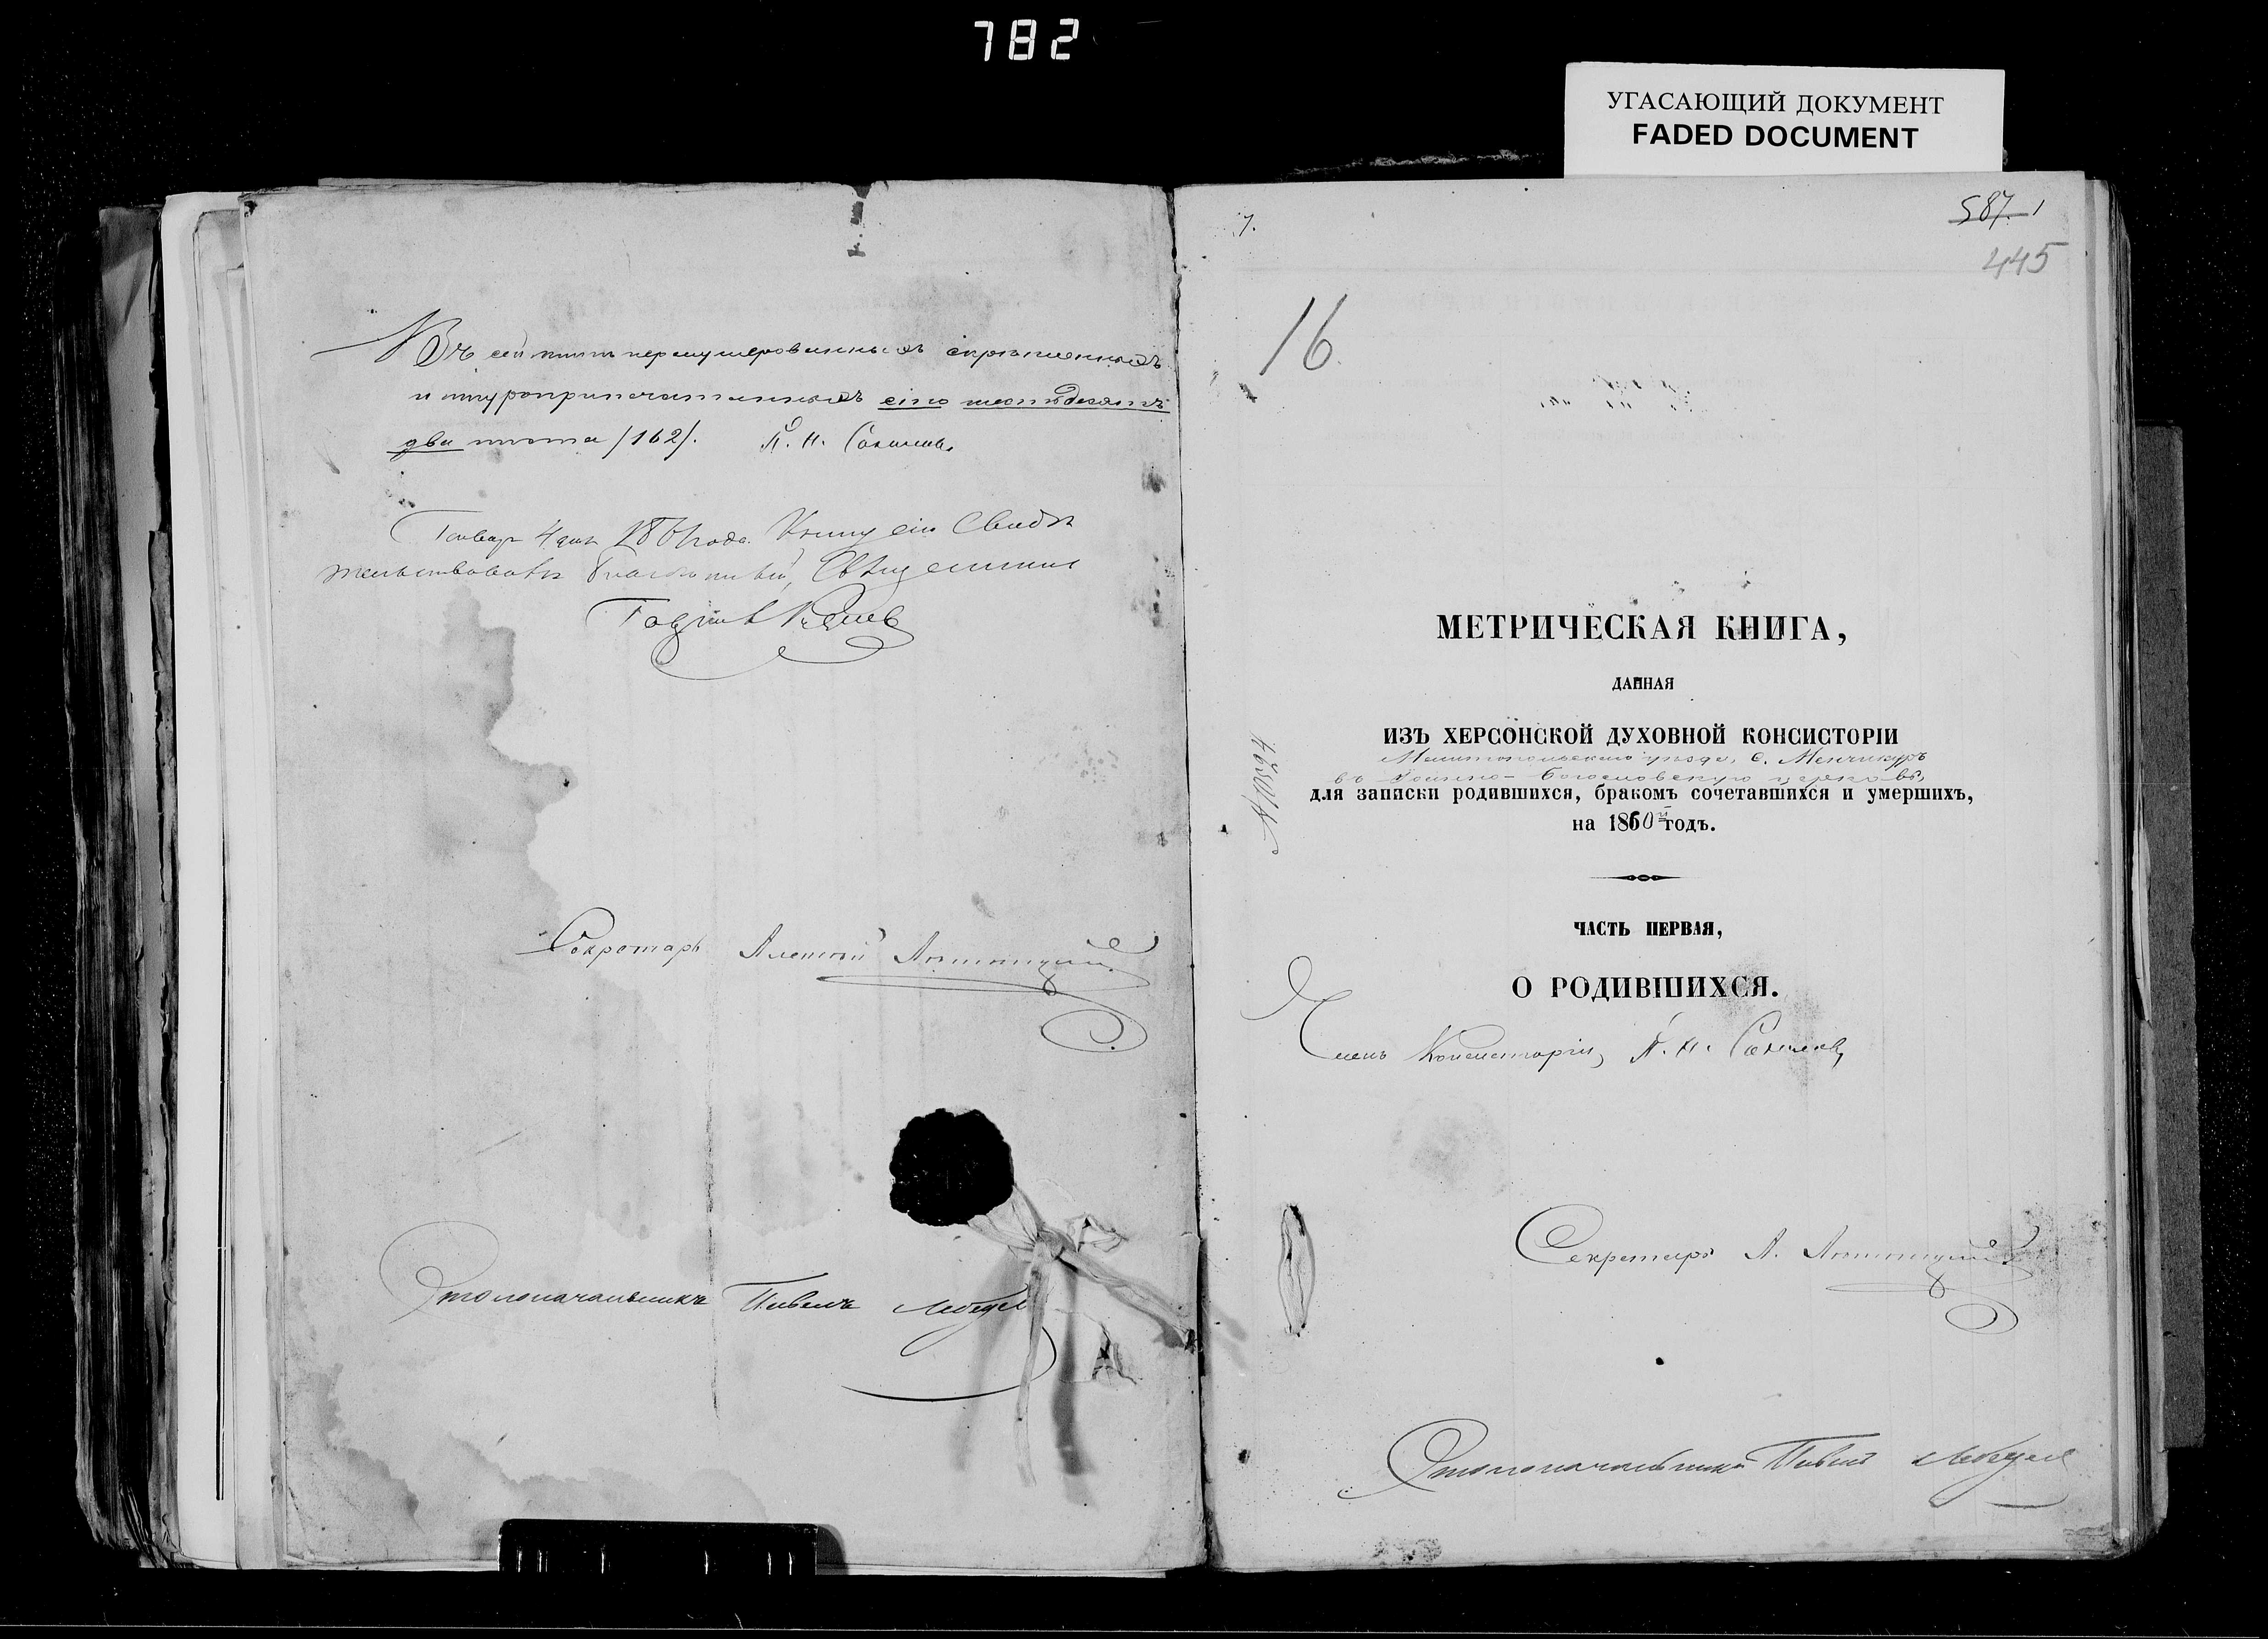 782
УГАСАЮЩИЙ ДОКУМЕНТ
FADED DOCUMENT
Въ сей книгѣ перенумерованныхъ скрѣпленныхъ
и шнуроприпечатанныхъ сто шестьдесятъ
два листа /162/. П. Н. Соколовъ
Генваря 4 дня 1861 года. Книгу сію Свидѣ
тельствовалъ Благочинный, Священникъ
Секретарь Алексѣй
Столоначальникъ Павелъ
7.
587. 1
445
16
МЕТРИЧЕСКАЯ КНИГА,
ДАННАЯ
ИЗЪ ХЕРСОНСКОЙ ДУХОВНОЙ КОНСИСТОРІИ
Мелитопольскаго уѣзда, с. Менчикуръ
въ Іоанно-Богословскую церковь,
для записки родившихся, бракомъ сочетавшихся и умершихъ,
на 1860й годъ.
№ 10894
ЧАСТЬ ПЕРВАЯ,
О РОДИВШИХСЯ.
Членъ Консисторіи, П. Н. Соколовъ
Секретарь А.
Столоначальникъ Павелъ